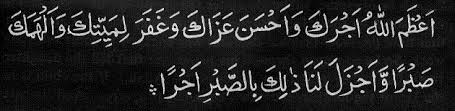 اَعْظَمَ اللّٰهُ اَجْرَكَ وَاَحْسَنَ عَزَاكَ وَغَفَرَ لِمَيِّتِكَ وَاَلْهَمَكَ
صَبْرًا وَّاَجْزَلَ لَنَا ذٰلِكَ بِالصَّبْرِ اَجْرًا